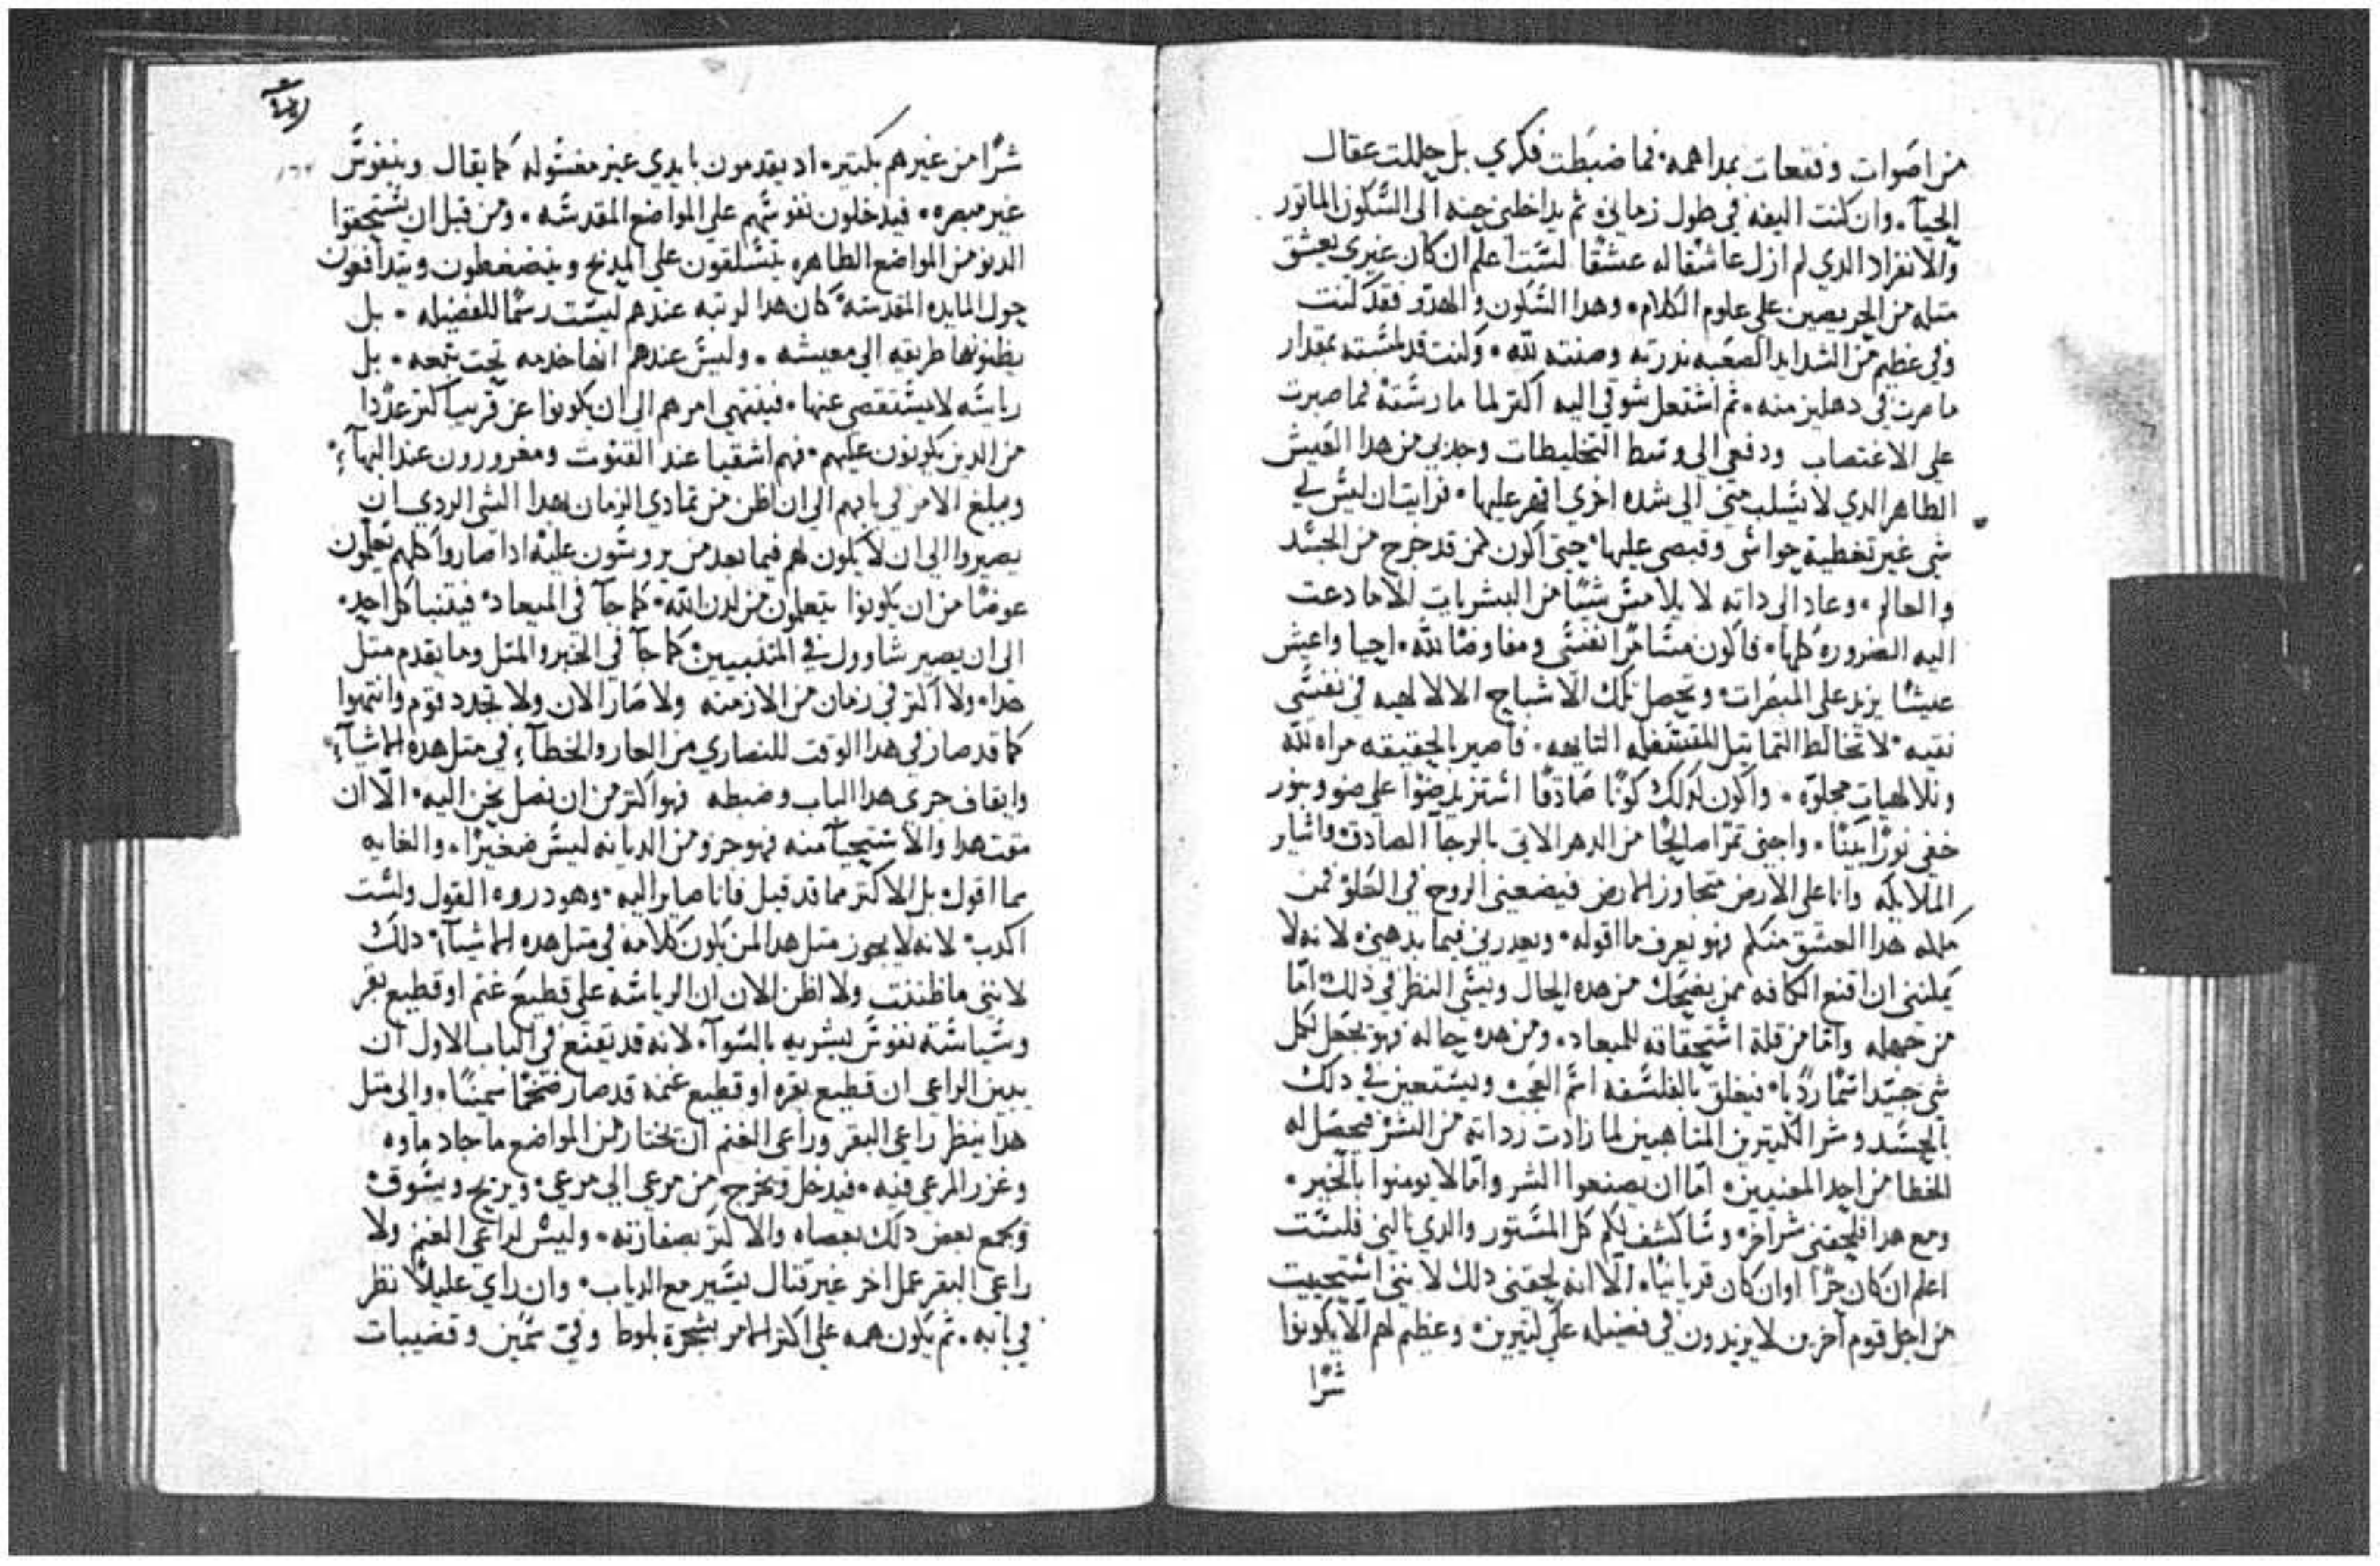 من اصَوات وفقعات بمداهمه۰ فما ضبَطت فكري بل حللت عقال
الحيآ۰ وان كنت اليفه في طول زماني۰ ثم يداخلني حنه الى السَّكون الماتور
والانفراد الدي لم ازل عاشقًا له عشقًا لسَّت اعلم ان كان غيري يعشق
متله من الحريصين على علوم الكلام۰ وهدا السَّكون والهدو فقد كنت
وفي عظيم من الشدايد الصَعبه ندرته وصنته لله۰ وكنت قد لمسَّته بمقدار
ما صرت في دهليز منه۰ ثم اشتعل شوقي اليه اكتر لما مارسَّته فما صبرت
على الاغتصاب ودفعي الى وسَط التخليطات وجدبي من هدا العَيش
الطاهر الدي لا يسَّلب مني الى شده اخرى اقهر عليها۰ فرايت ان ليسَّ لي
شي غير تغطية حواسَّي وقبضي عليها۰ حتى اكون كمن قد خرج من الجسَّد
والعالم۰ وعاد الى داته لا يلامسَّ شيًا من البشريات الا ما دعت
اليه الضروره كلها۰ فاكون مسَّامرًا لنفسَّي ومفاوضًا لله۰ احيا واعيش
عيشًا يزيد على المبصَرات۰ وتحصل تلك الاشباح الالالهيه في نفسَّي
نقيه۰ لا تخالط التماتيل المتسَّفله التايهه۰ فاصير بالحقيقه مراه لله
وللالهيات مجلوّه۰ واكون لدلك كونًا صَادقًا اسَّتزيد ضوًا على ضو وبنور
خفي نورًا بينًا۰ واجني تمرًا صالحًا من الدهر الاتي بالرجآ الصادق۰ واسَّاير
الملايكه وانا على الارض متجاوز الارض فيضعني الروح في العَلو فمن
ملكه هدا العشق منكم فهو يعرف ما اقوله۰ ويعدرني فيما يدهمني لانه لا
يمكنني ان اقنع الكافه ممن يضَحك من هده الحال ويسَّي النظر في دلك۰ امّا
من جهله وامّا من قلة اسَّتحقاقه للميعاد۰ ومن هده حاله فهو يجعل لكل
شي جيّد اسَّمًا رديًا۰ فيعلق بالفلسَّفه اسَّم العَجب ويسَّتعين في دلك
بالحسَّد وشر الكتيرين المتاهبين لما زادت رداته من الشر فيحصَل له
الخطا من احد المعنيين۰ امّا ان يصنعوا الشر وامّا لا يومنوا بالخير۰
ومع هدا فلحقني شر اخر۰ وسَّاكشف لكم كل المسَّتور والدي نالني فلسَّت
اعلم ان كان حرًا او ان كان قربانيًا۰ الّا انه لحقني دلك لانني اسَّتحييت
من اجل قوم آخرين لا يزيدون في فضيله على كتيرين۰ وعظيم لهم الّا يكونوا
شرًا
شرًا من غيرهم بكتير۰ اد يقدمون بايدي غير مغسَّوله كما يقال وبنفوسَّ
غير مبصره۰ فيدخلون نفوسَّهم على المواضع المقدسَّه۰ ومن قبل ان يسَّتحقوا
الدنو من المواضع الطاهره يتسَّلقون على المدبح وينضغطون ويتدافعون
حول المايده المقدسَّه۰ كان هدا لرتبه عندهم ليسَّت رسَّمًا للفضيله۰ بل
يظنونها طريقه الى معيشه۰ وليسَّ عندهم انها خدمه تحت تبعه۰ بل
رياسَّه لا يسَّتقصى عنها۰ فينتهي امرهم الى ان يكونوا عن قريب اكتر عددًا
من الدين يكونون عليهم۰ فهم اشقيا عند القنوت ومغرورون عند البهآ۰
ويبلغ الامر في بابهم الى ان اظن من تمادي الزمان هدا الشي الردي ان
يصيروا الى ان لا يكون لهم فيما بعد من يروسَّون عليه ادا صاروا كلهم يعَلمون
عوضًا من ان يكونوا يتعلمون من لدن الله۰ كما جآ في الميعاد۰ فيتنبا كل احد۰
الى ان يصير شاوول في المتنبيين كما جآ في الخبر والمتل وما يقدم متل
هدا۰ ولا اكتر في زمان من الازمنه ولا صَار الان ولا تجدد قوم وانتهوا
كما قد صار في هدا الوقت للنصاري من العار والخطآ في متل هده الاشيآ
وايقاف جري هدا الباب وضبطه فهو اكتر من ان نصل نحن اليه۰ الّا ان
مقت هدا والاسَّتحيآ منه فهو جزو من الديانه ليسَّ صَغيرًا۰ والغايه
مما اقول بل الاكتر مما قد قيل فانا صاير اليه۰ وهو دروه القول ولسَّت
اكدب۰ لانه لا يجوز متل هدا لمن يكون كلامه في متل هده الاشيآ۰ دلك
لانني ما ظننت ولا اظن الان ان الرياسَّه على قطيع غنم او قطيع بقر
وسَّياسَّة نفوسَّ بشريه بالسَّوآ۰ لانه قد يقنع في الباب الاول ان
يبين الراعي ان قطيع بقره او قطيع غنمه قد صار ضخمًا سَّمينًا۰ والى متل
هدا ينظر راعي البقر وراعي الغنم ان يختار من المواضع ما جاد ماوه
وغزر المرعى فيه۰ فيدخل ويخرج من مرعى الى مرعى۰ ويريح ويسَّوق
ويجمع بعض دلك بعصاه والاكتر بصفارته۰ وليسَّ لراعي الغنم ولا
راعي البقر عمل اخر غير قتال يسَّير مع الدياب۰ وان راي عليلًا نظر
في بابه۰ ثم يكون همه على اكتر الامر بشجرة بلوط وفي سَّمين وقضيبات